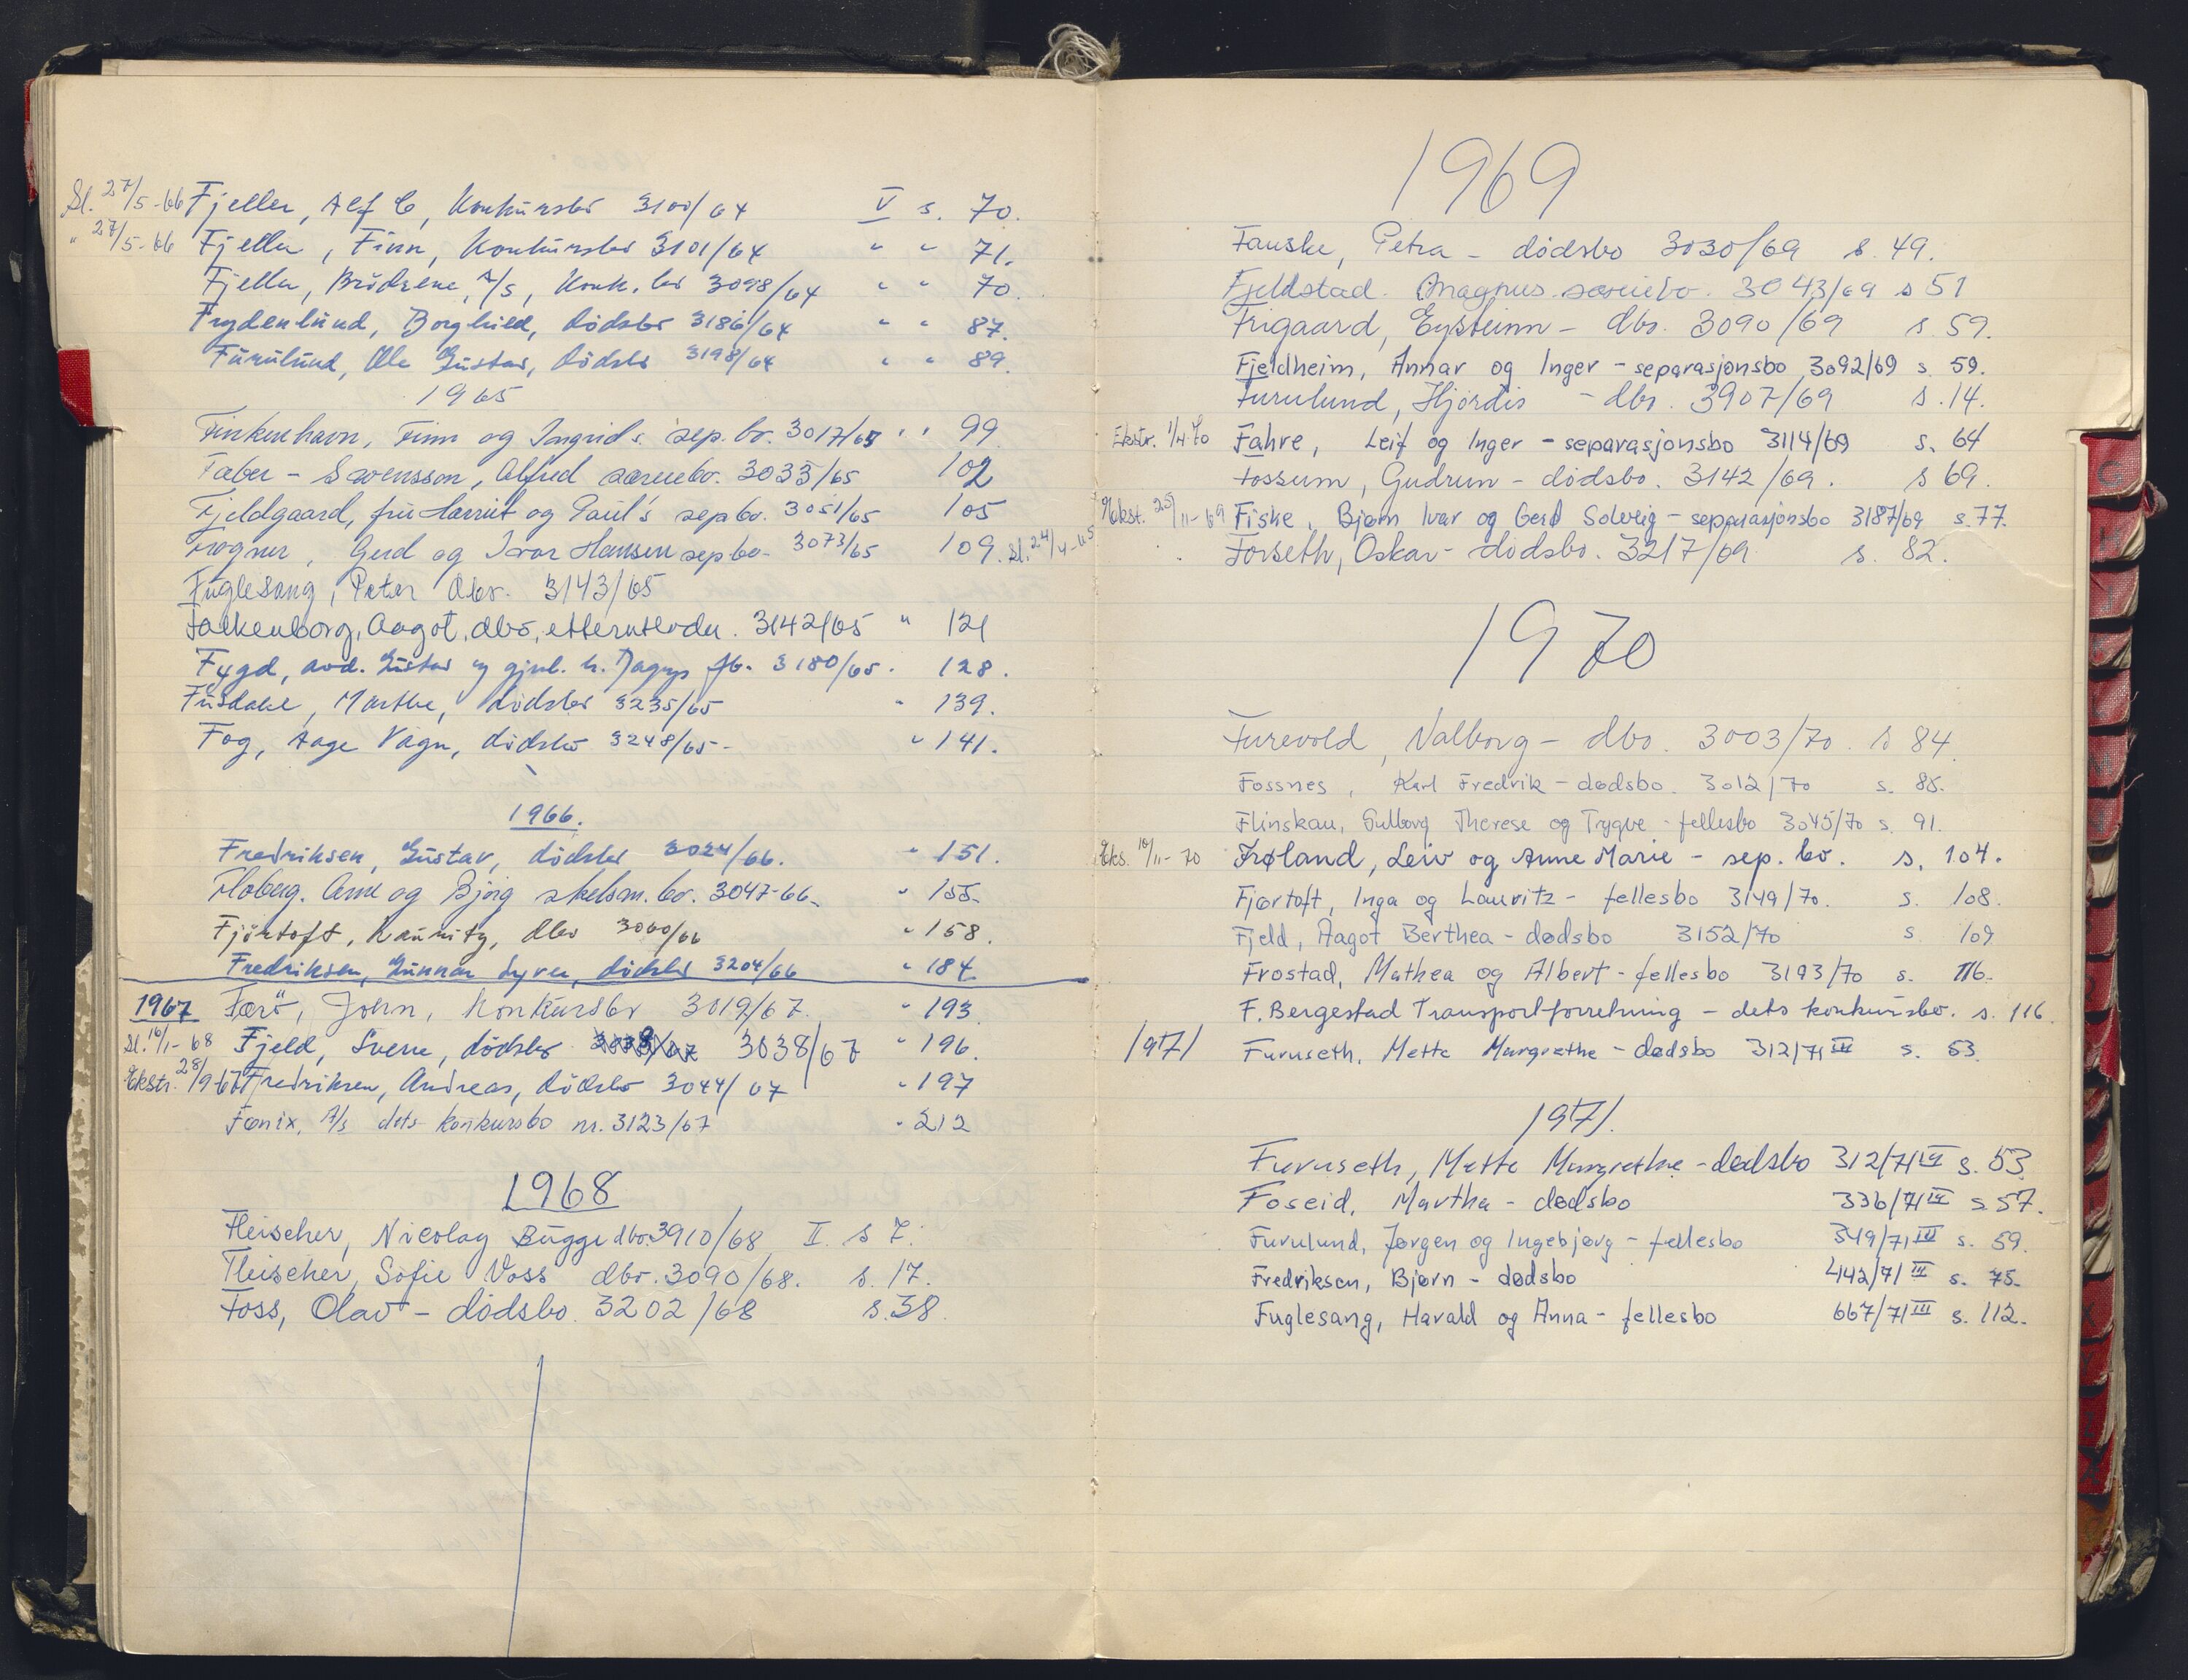 Sl. 27/5-66 Fjeller, Alf C, Konkursbo 3100/64 V s. 70.
" 27/5-66 Fjeller, Finn, Konkursbo 3101/64 " " 71.
Fjeller, Brödrene, A/S, Konk. bo 3098/64 " " 70.
Frydenlund, Borghild, dödsbo 3186/64 " " 87.
Furulund, Ole Gustav, dödsbo 3198/64 " " 89.
1965
Finkenhavn, Finn og Ingrids sep. bo. 3017/65 " " 99
Faber - Svensson, Alfred særeiebo. 3033/65 102
Fjeldgaard, fru Harriet og Paul's sepbo. 3051/65 105
Frogner, Gerd og Ivar Hansen sepbo- 3073/65 109. Sl. 24/4-65
Fuglesang, Peter dbo. 3143/65
Falkenborg, Aagot, dbo, etterutlodn. 3142/65 " 121
Fygd, avd. Gustav og gjenl. h. Dagny fb. 3180/65. 128.
Fusdahl, Marthe, dödsbo 3235/65 " 139.
Fog, Aage Vagn, dödsbo 3248/65- " 141.
1966.
Fredriksen, Gustav, dödsbo 3024/66. " 151.
Floberg. Arne og Björg skilsm. bo. 3047-66- " 155-
Fjörtoft, Lauritz, dbo 3060/66 " 158.
Fredriksen, Gunnar Syver, dödsbo 3204/66 " 184
1967 Færö, John, Konkursbo 3019/67. " 193
Sl. 16/1-68 Fjeld, Sverre, dödsbo 3038/67 " 196.
Ekstr. 28/9 67 Fredriksen, Andreas, dödsbo 3044/67 " 197
Fønix, A/s dets konkursbo nr. 3123/67 " 212
1968
Fleischer, Nicolay Bugge dbo. 3910/68 II. s 7.
Fleischer, Sofie Voss dbo. 3090/68. s. 17.
Foss, Olav - dödsbo. 3202/68 s. 38.
1969
Fauske, Petra - dödsbo 3030/69 s. 49.
Fjeldstad. Magnus særeiebo. 3043/69 s 51
Frigaard, Eysteinn - dbo. 3090/69 s. 59.
Fjeldheim, Annar og Inger - separasjonsbo 3092/69 s. 59.
Furulund, Hjördis - dbo. 3907/69 s. 14.
Ekstr. 1/4-70 Fahre, Leif og Inger - separasjonsbo 3114/69 s. 64
Fossum, Gudrun - dödsbo. 3142/69. s 69.
Ekst. 25/11-69 Fiske, Bjørn Ivar og Gerd Solveig - separasjonsbo 3187/69 s. 77.
Forseth, Oskar - dödsbo. 3217/69 s. 82.
1970
Furevold, Valborg - dbo. 3003/70. s 84
Fossnes, Karl Fredrik - dødsbo. 3012/70 s. 85.
Flinskau, Gulborg Therese og Trygve - fellesbo 3045/70 s. 91.
Eks. 10/11-70 Frøland, Leiv og Anne Marie - sep. bo. s. 104.
Fjørtoft, Inga og Lauritz - fellesbo 3149/70. s. 108.
Fjeld, Aagot Berthea - dødsbo 3152/70 s 109
Frostad, Mathea og Albert - fellesbo 3193/70 s. 116.
F. Bergestad Transportforretning - dets konkursbo. s. 116.
1971 Furuseth, Mette Margrethe - dødsbo 312/71 III s. 53.
1971.
Furuseth, Mette Margrethe - dødsbo 312/71 III s. 53
Foseid, Martha - dødsbo 336/71 III s 57.
Furulund, Jørgen og Ingebjørg - fellesbo 349/71 III s. 59.
Fredriksen, Bjørn - dødsbo 442/71 III s. 75.
Fuglesang, Harald og Anna - fellesbo 667/71 III s. 112.